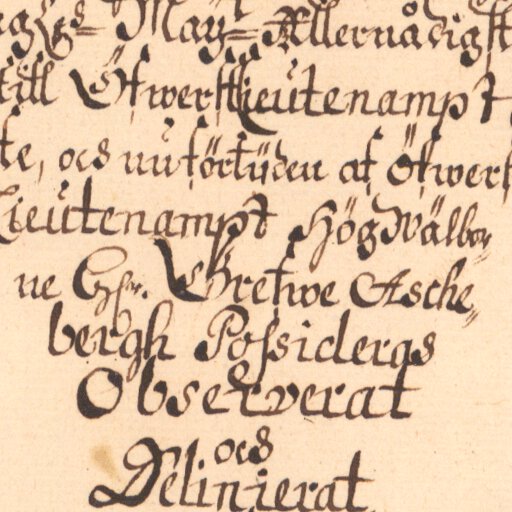 Maytt Allernådigst
till Öfwerstlieutenampt
te, och nu förtijden af Öfwerst
Lieutenampt HögWälbor„
ne Hr. Grefwe Asche„
bergh Possideras
Observerat
och
Delinierat